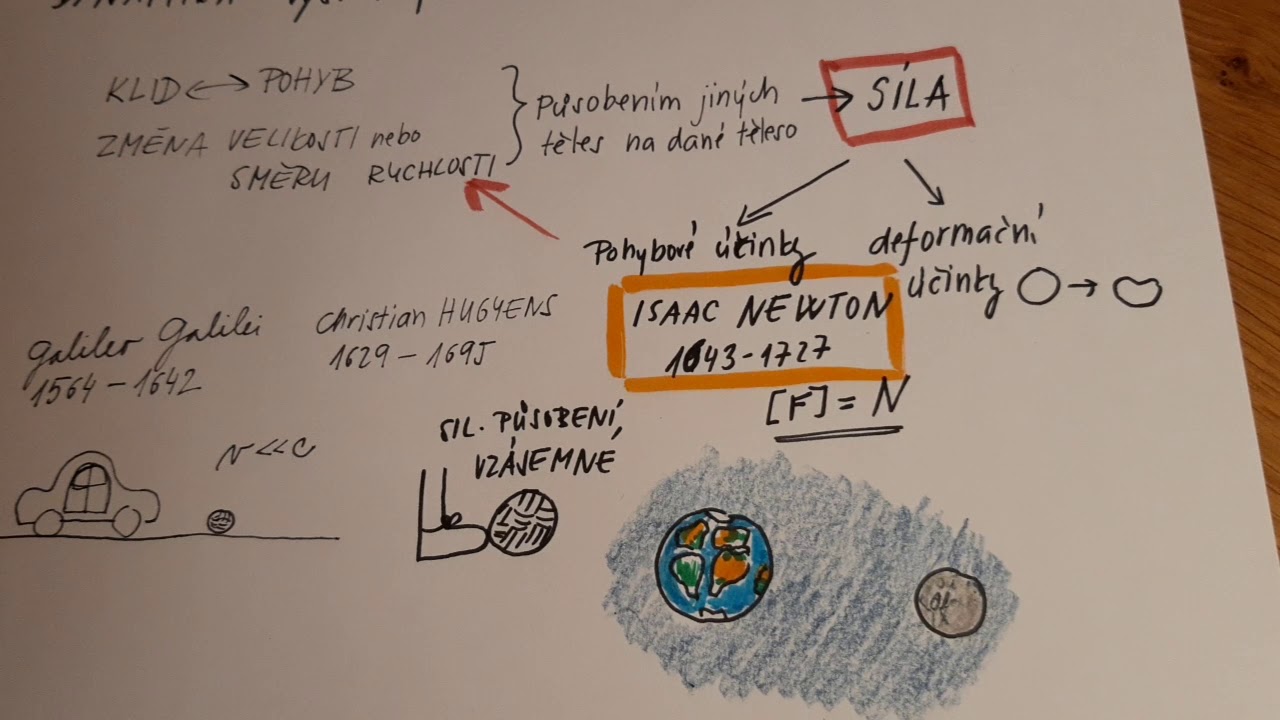 KLID ↔ POHYB
ZMĚNA VELIKOSTI nebo
SMĚRU RYCHLOSTI
působením jiných
těles na dané těleso
→ SÍLA
Pohybové účinky
deformační
účinky
Galileo Galilei
1564 - 1642
Christian HUGYENS
1629 - 1695
ISAAC NEWTON
1643 - 1727
[F] = N
v << c
SIL. PŮSOBENÍ,
VZÁJEMNÉ